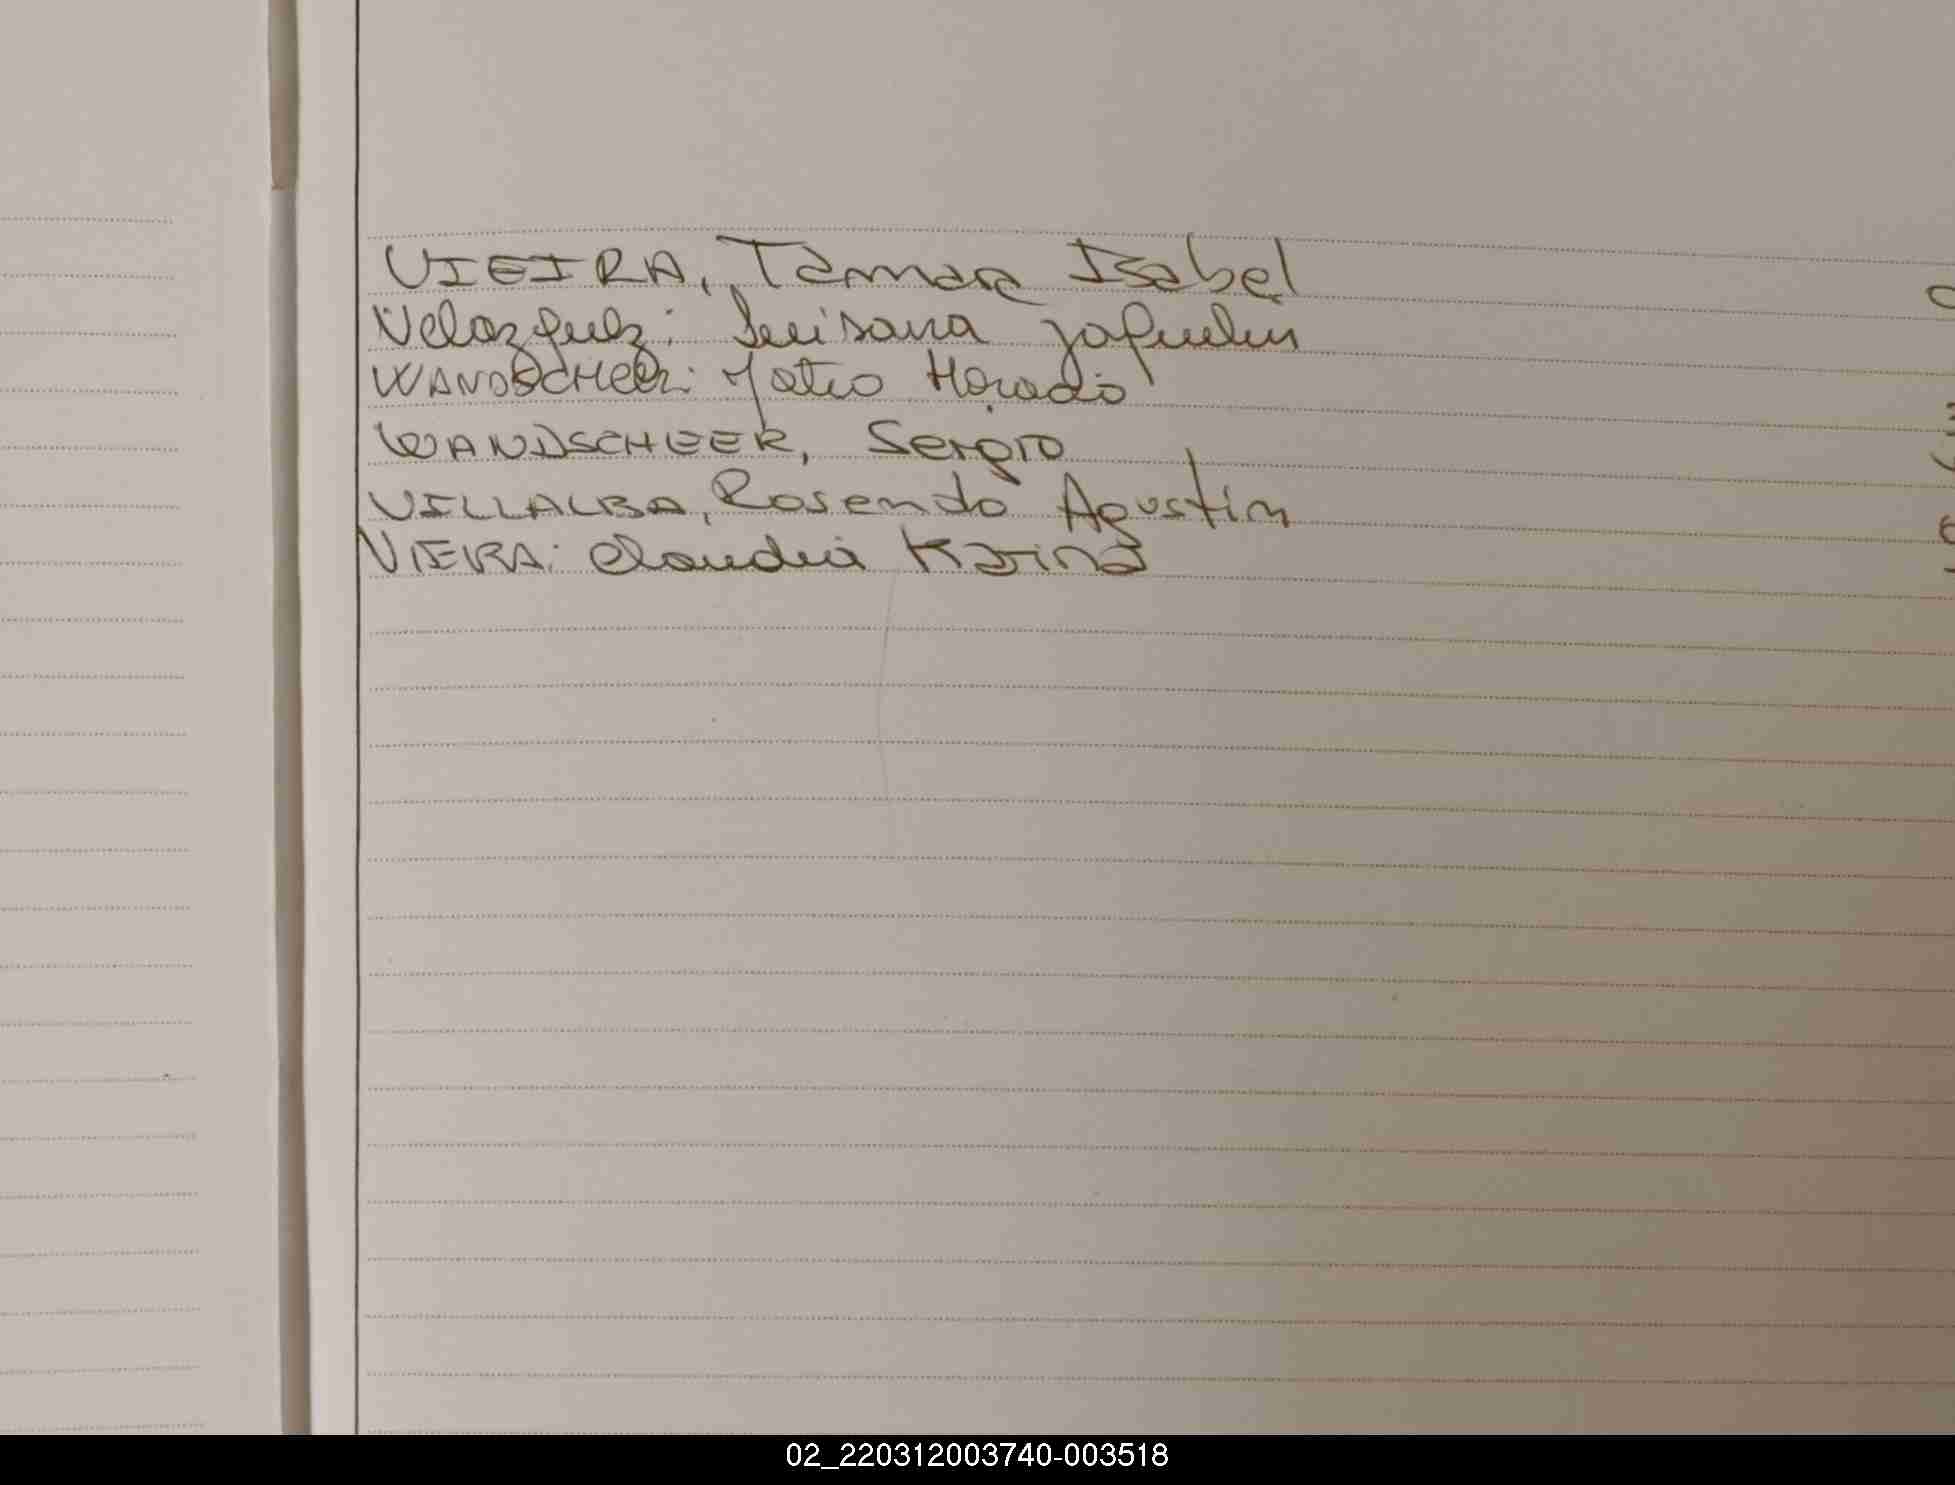 VIEIRA, Tamara Isabel
Velazquez: Luisana
WANDSCHEER: Mateo Horacio
WANDSCHEER, Sergio
VILLALBA, Rosendo Agustin
VIEIRA: Claudia Karina
02_220312003740-003518